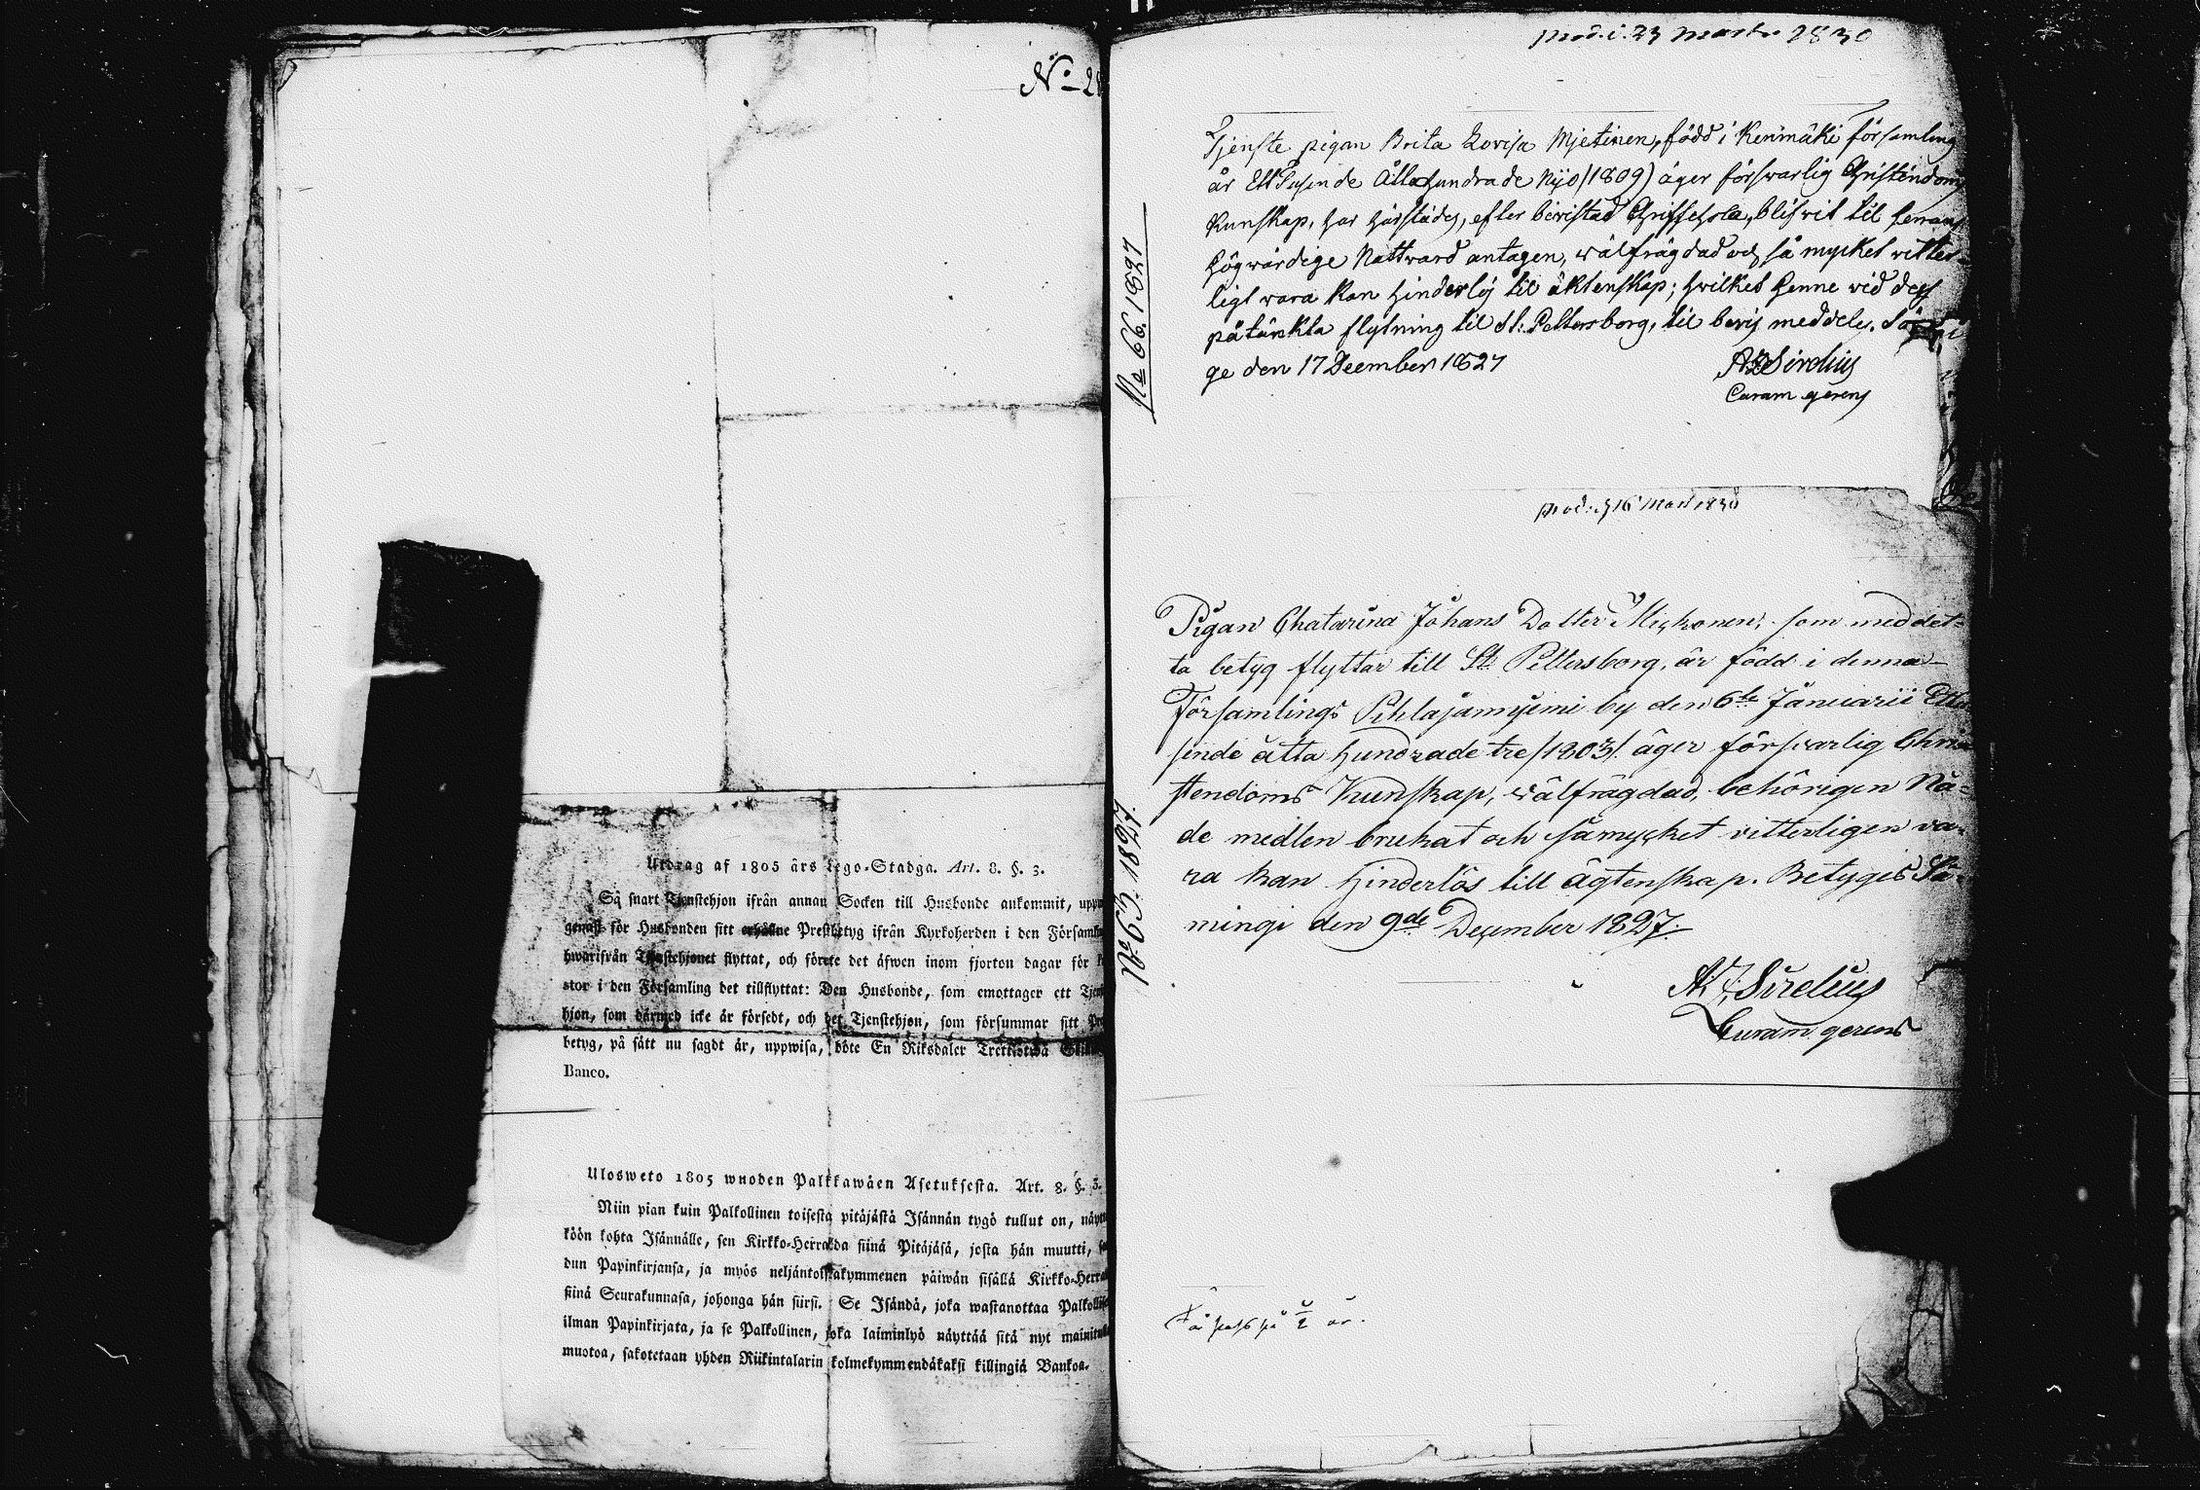 No 2
Utdrag af 1805 års Lego-Stadga. Art. 8. §. 3.
Så snart Tjenstehjon ifrån annan Socken till Husbonde ankommit,
genast för Husbonden sitt erhållne Prestbetyg ifrån Kyrkoherden i den
hwarifrån Tjenstehjonet flyttat, och förete det äfwen inom fjorton dagar för
i den Församling det tillflyttat: Den Husbonde, som emottager ett
hjon, som därmed icke är försedt, och det Tjenstehjon, som försummar sitt
betyg, på sätt nu sagdt är, uppwisa, böte En Riksdaler Trettiotwå
Banco.
Ulosweto 1805 wuoden Palkkawäen Asetuksesta. Art. 8. §. 3.
Niin pian kuin Palkollinen toisesta pitäjästä Isännän tygö tullut on,
köön kohta Isännälle, sen Kirkko-Herralda siinä Pitäjäsä, josta hän muutti,
dun Papinkirjansa, ja myös neljäntoistakymmenen päiwän sisällä
siinä Seurakunnasa, johonga hän siirsi. Se Isändä, joka wastanottaa
ilman Papinkirjata, ja se Palkollinen, joka laiminlyö näyttää sitä nyt
muotoa, sakotetaan yhden Riikintalarin kolmekymmendäkaksi killingiä Bankoa.
prod. d. 23 Mart. 1830
No 66. 1827
Tjenste pigan Brita Lovisa Mjetinen, född i Kerimäki församling
år Ett Tusende Åtta hundrade Nijo (1809) äger förswarlig Christendoms
Kunskap, har härstädes, efter bevistad Skriftskola, blifvit til Herrans
högwördige Nattward antagen, wälfrägdad och så mycket vitter-
ligt vara kan hinderlös til äktenskap; hvilket henne vid dess
påtänkta flytning til St: Pettersborg, til bevis meddeles.
ge den 17 December 1827
Curam gerens
prod. d. 16 Mart 1830
No 63. 1827.
Pigan Chatarina Johans Dotter som med det-
ta betyg flyttar till St. Pettersborg, är född i denna
Församlings Pihlajanniemi by den 6te Januarii
sinde åtta hundrade tre /1803/. äger förswarlig Chri-
stendoms Kunskap, wälfrägdad, behörigen Nå-
de medlen brukat och såmycket vitterligen va-
ra kan hinderlös till ägtenskap. Betygas Sä-
mingi den 9de December 1827.
A. J. Sirelius
Curam gerens
på ½ år.